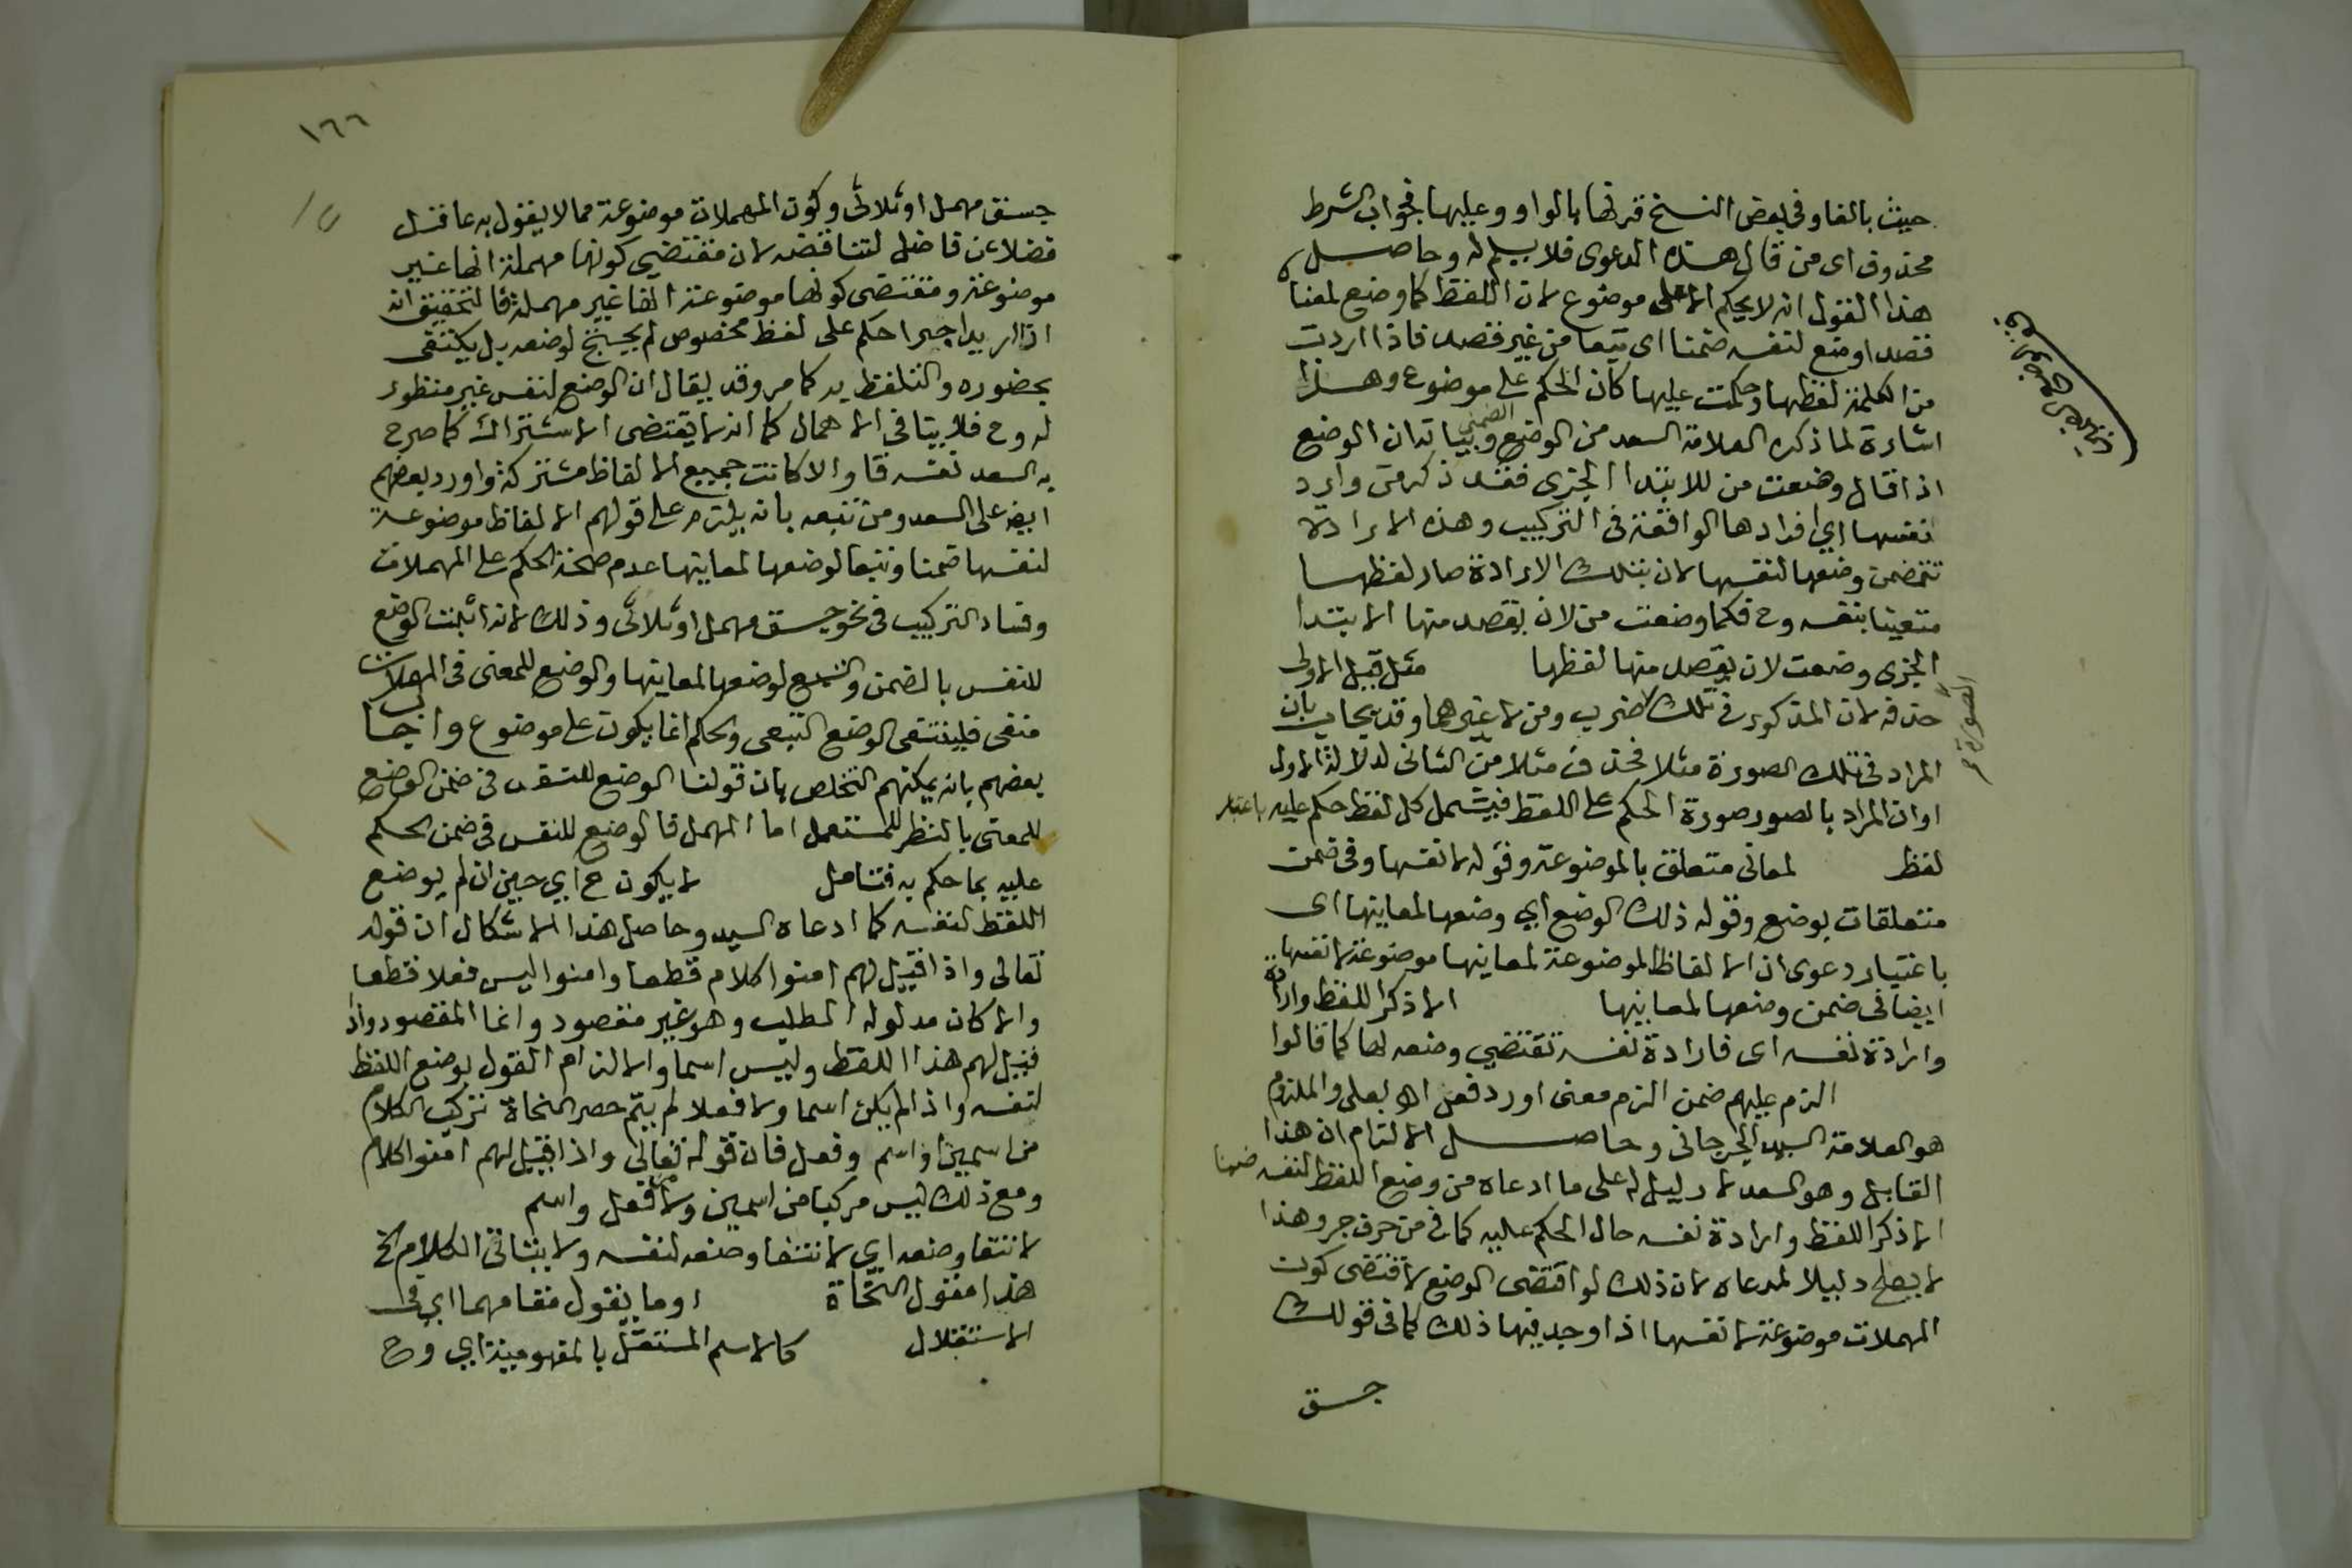 حيث بالفا وفى بعض النسخ قرنها بالواو وعليها فجواب الشرط
محذوف اى من قال هذه الدعوى فلا يسلم له وحاصل
هذا القول انه لا يحكم الا على موضوع لان اللفظ كما وضع لمعناه
قصدا وضع لنفسه ضمنا اى تبعا من غير قصد فاذا اردت
من الكلمة لفظها وحكمت عليها كان الحكم على موضوع وهذا
اشارة لما ذكره العلامة السعد من الوضع الضمنى وبيانه ان الواضع
اذا قال وضعت من للابتدا الجزى فقد ذكر من واراد
نفسها اي افرادها الواقعة فى التركيب وهذه الارادة
تتضمن وضعها لنفسها لان بتلك الارادة صار لفظها
متعينا بنفسه وح فكما وضعت من لان يقصد منها الابتدا
الجزى وضعت لان يقصد منها لفظها مثل قبيل الاولى
حذفه لان المذكور فى تلك ضرب ومن لا غيرهما وقد يجاب بان
الصورة
المراد فى تلك الصورة مثلا فحذف مثلا من الثانى لدلالة الاولى
او ان المراد بالصور صورة الحكم على اللفظ فيشمل كل لفظ حكم عليه باعتبار
لفظ لمعانى متعلق بالموضوعة وقوله لانفسها وفى ضمن
متعلقات بوضع وقوله ذلك الوضع اي وضعها لمعانيها اى
باعتبار دعوى ان الالفاظ الموضوعة لمعانيها موضوعة لانفسها
ايضا فى ضمن وضعها لمعانيها الا ذكر اللفظ وارادة
وارادة نفسه اى فارادة نفسه تقتضي وضعه لها كما قالوا
الزم عليهم ضمن الزم معنى اورد فعداه بعلى والملزم
هو العلامة السيد الجرجانى وحاصل الالتزام ان هذا
القايل وهو السعد لا دليل له على ما ادعاه من وضع اللفظ لنفسه ضمنا
الا ذكر اللفظ وارادة نفسه حال الحكم عليه كما فى من حرف جر وهذا
لا يصلح دليلا لمدعاه لان ذلك لو اقتضى الوضع لاقتضى كون
المهملات موضوعة لانفسها اذا وجد فيها ذلك كما فى قولك
جسق
١٦٦
جسق مهمل او ثلاثى وكون المهملات موضوعة مما لا يقول به عاقل
فضلا عن فاضل لتناقضه لان مقتضي كونها مهملة انها غير
موضوعة ومقتضى كونها موضوعة انها غير مهملة فالتحقيق انه
اذا اريد اجرا حكم على لفظ مخصوص لم يحتج لوضعه بل يكتفى
بحضوره والتلفظ به كما مر وقد يقال ان الوضع لنفس غير منظور
له وح فلا ينافى الاهمال كما انه لا يقتضى الاشتراك كما صرح
به السعد نفسه قا والا كانت جميع الالفاظ مشتركة واورد بعضهم
ايضا على السعد ومن تبعه بانه يلزم على قولهم الالفاظ موضوعة
لنفسها ضمنا وتبعا لوضعها لمعانيها عدم صحة الحكم على المهملات
وفساد التركيب فى نحو جسق مهمل او ثلاثى وذلك لانه اثبت الوضع
للنفس بالضمن والتبع لوضعها لمعانيها والوضع للمعنى فى المهملات
منفى فلينتفى الوضع التبعى والحكم انما يكون على موضوع واجاب
بعضهم بانه يمكنهم التخلص بان قولنا الوضع للنفس فى ضمن الوضع
للمعنى بالنظر للمستعمل اما المهمل فالوضع للنفس فى ضمن الحكم
عليه بما حكم به فتامل لا يكون ح اي حين ان لم يوضع
اللفظ لنفسه كما ادعاه السيد وحاصل هذا الاشكال ان قوله
تعالى واذا قيل لهم امنوا كلام قطعا وامنوا ليس فعلا قطعا
والا كان مدلوله الطلب وهو غير مقصود وانما المقصود واذا
قيل لهم هذا اللفظ وليس اسما والا لزم القول بوضع اللفظ
لنفسه واذا لم يكن اسما ولا فعلا لم يتم حصر النحاة تركيب الكلام
من اسمين او اسم وفعل فان قوله تعالى واذا قيل لهم امنوا كلام
ومع ذلك ليس مركبا من اسمين ولا من فعل واسم
لانتفا وضعه اي لانتفا وضعه لنفسه ولا يتاتى الكلام الخ
هذا مقول النحاة او ما يقول مقامهما اي فى
الاستقلال كالاسم المستقل بالمفهومية اي وح